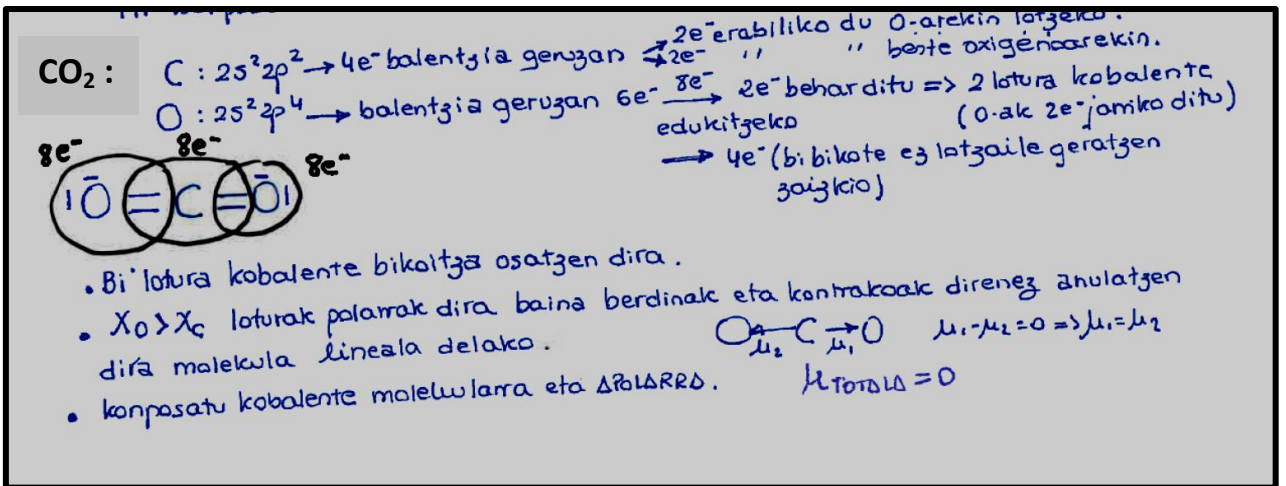 CO₂ :
C : 2s²2p² → 4e⁻ balentzia geruzan → 2e⁻ erabiliko du O-arekin lotzeko.
→ 2e⁻ '' '' beste oxigenoarekin.
O : 2s²2p⁴ → balentzia geruzan 6e⁻ 8e⁻ → 2e⁻ behar ditu => 2 lotura kobalente
edukitzeko (O-ak 2e⁻ jarriko ditu)
→ 4e⁻ (bi bikote ez lotzaile geratzen
zaizkio)
8e⁻ 8e⁻ 8e⁻
|Ō = C = Ō|
• Bi lotura kobalente bikoitza osatzen dira.
• X_O > X_C loturak polarrak dira baina berdinak eta kontrakoak direnez anulatzen
dira molekula lineala delako. O ← C → O μ₂ μ₁ μ₁-μ₂=0 => μ₁=μ₂
• konposatu kobalente molekularra eta APOLARRA. μ TOTALA = 0